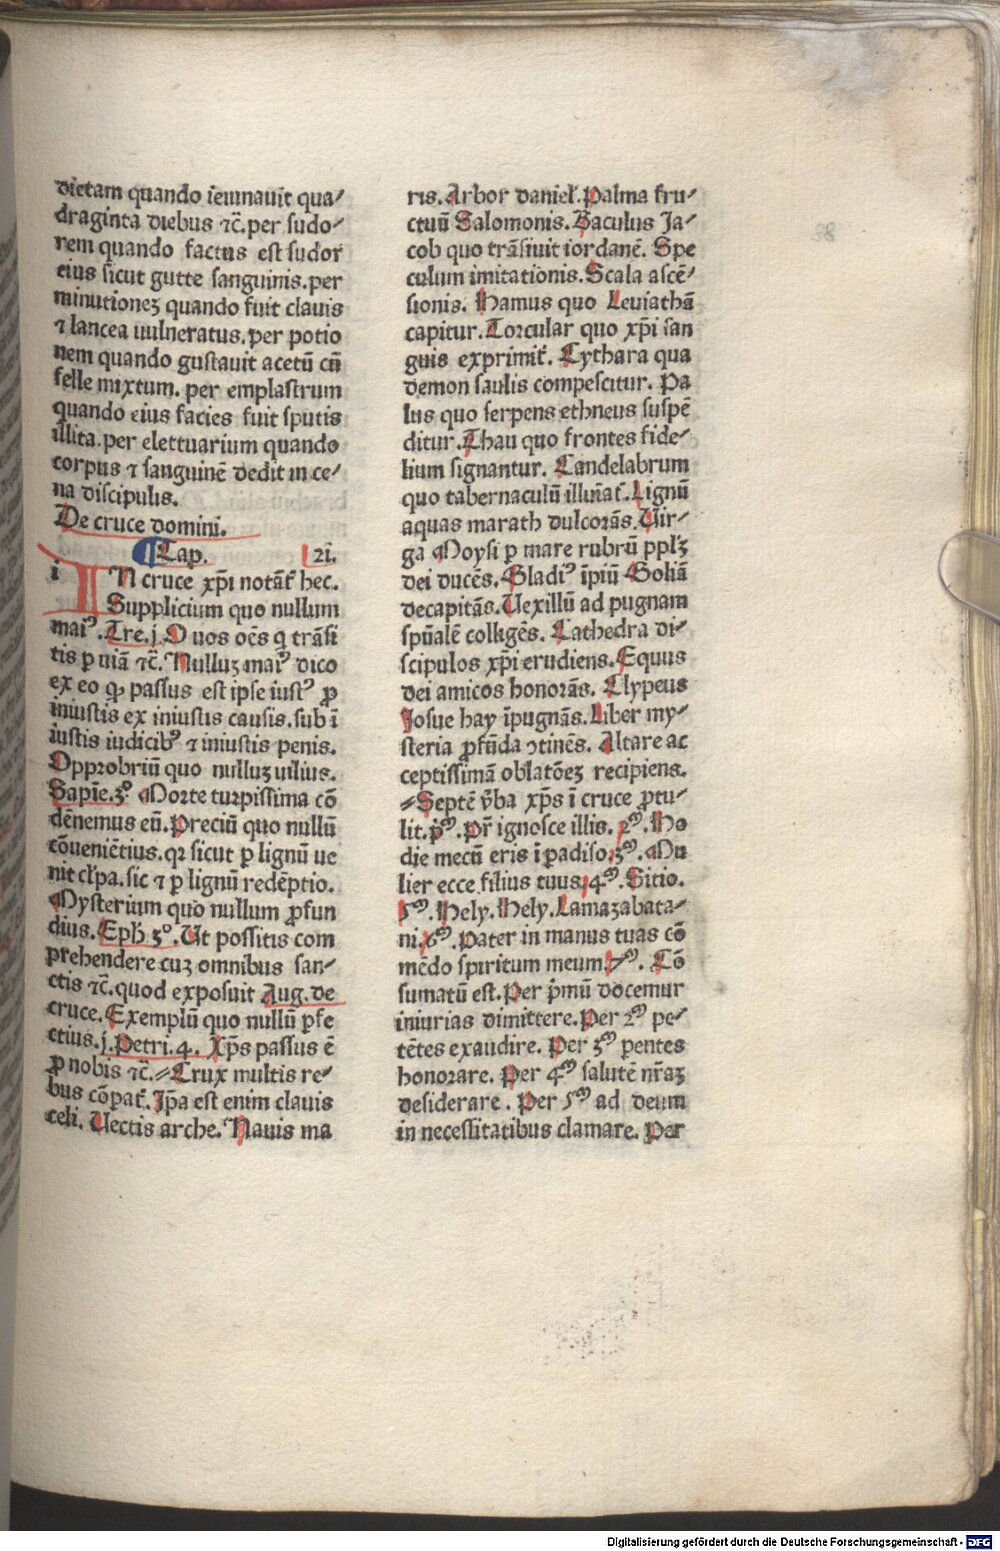 dietam quando ieiunauit qua⸗
draginta diebus ⁊c̄. per sudo⸗
rem quando factus est sudor
eius sicut gutte sanguinis. per
minutionez quando fuit clauis
⁊ lancea uulneratus. per potio
nem quando gustauit acetū cū
felle mixtum. per emplastrum
quando eius facies fuit sputis
illita. per elettuarium quando
corpus ⁊ sanguinē dedit in ce⸗
na discipulis.
De cruce domini.
Cap. 21.
IN cruce xp̄i notāt᷑ hec.
Supplicium quo nullum
maiꝰ. Tre. j. O uos oēs q̄ trāsi
tis ꝑ uiā ⁊c̄. Nulluz maiꝰ dico
ex eo ꝙ passus est ipse iustꝰ ꝓ
iniustis ex iniustis causis. sub ī
iustis iudicibꝰ ⁊ iniustis penis.
Opprobriū quo nulluz uilius.
Sapīe. 3° Morte turpissima cō
dēnemus eū. Preciū quo nullū
cōueniētius. qꝛ sicut ꝑ lignū ue
nit cl̄pa. sic ⁊ ꝑ lignū redēptio.
Mysterium quo nullum ꝓfun
dius. Eph̄ 3°. Ut possitis com
prehendere cuz omnibus san⸗
ctis ⁊c̄. quod exposuit Aug. de
cruce. Exemplū quo nullū ꝑfe
ctius. j. Petri. 4. Xp̄s passus ē
ꝓ nobis ⁊c̄. ⸗ Crux multis re⸗
bus cōꝑat᷑. Ip̄a est enim clauis
celi. Uectis arche. Nauis ma
ris. Arbor daniel̄. Palma fru⸗
ctuū Salomonis. Baculus Ja⸗
cob quo trāsiuit iordanē. Spe
culum imitationis. Scala ascē⸗
sionis. Hamus quo Leuiathā
capitur. Torcular quo xp̄i san
guis exprimit᷑. Cythara qua
demon saulis compescitur. Pa
lus quo serpens ethneus suspē
ditur. Thau quo frontes fide⸗
lium signantur. Candelabrum
quo tabernaculū illuīat᷑. Lignū
aquas marath dulcorās. Uir⸗
ga Moysi ꝑ mare rubrū ppl̄ꝫ
dei ducēs. Gladiꝰ īpiū Goliā
decapitās. Uexillū ad pugnam
spūalē colligēs. Cathedra di⸗
scipulos xp̄i erudiens. Equus
dei amicos honorās. Clypeus
Josue hay īpugnās. Liber my⸗
steria ꝓfūda ꝯtinēs. Altare ac
ceptissimā oblatōez recipiens.
⸗ Septē v̄ba xp̄s ī cruce ꝓtu⸗
lit. pᵐ. Pr̄ ignosce illis. 2ᵐ. Ho
die mecū eris ī padiso. 3ᵐ. Mu
lier ecce filius tuus. 4ᵐ. Sitio.
5ᵐ. Hely. Hely. Lamazabata⸗
ni. 6ᵐ. Pater in manus tuas cō
mēdo spiritum meum. 7ᵐ. Cō
sumatū est. Per pͥmū docemur
iniurias dimittere. Per 2ᵐ pe⸗
tētes exaudire. Per 3ᵐ ꝑentes
honorare. Per 4ᵐ salutē nr̄aꝫ
desiderare. Per 5ᵐ ad deum
in necessitatibus clamare. Per
38
Digitalisierung gefördert durch die Deutsche Forschungsgemeinschaft - DFG